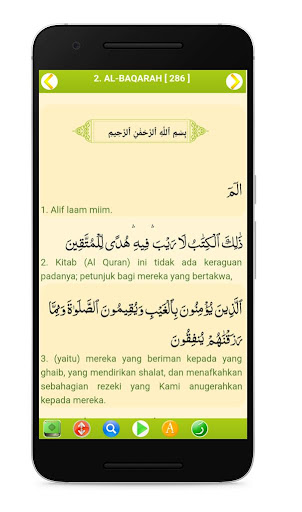 2. AL-BAQARAH [ 286 ]
بِسْمِ ٱللَّهِ ٱلرَّحْمَٰنِ ٱلرَّحِيمِ
الٓمٓ
1. Alif laam miim.
ذَٰلِكَ ٱلْكِتَٰبُ لَا رَيْبَ ۛ فِيهِ ۛ هُدًى لِّلْمُتَّقِينَ
2. Kitab (Al Quran) ini tidak ada keraguan
padanya; petunjuk bagi mereka yang bertakwa,
ٱلَّذِينَ يُؤْمِنُونَ بِٱلْغَيْبِ وَيُقِيمُونَ ٱلصَّلَوٰةَ وَمِمَّا
رَزَقْنَٰهُمْ يُنفِقُونَ
3. (yaitu) mereka yang beriman kepada yang
ghaib, yang mendirikan shalat, dan menafkahkan
sebahagian rezeki yang Kami anugerahkan
kepada mereka.
A